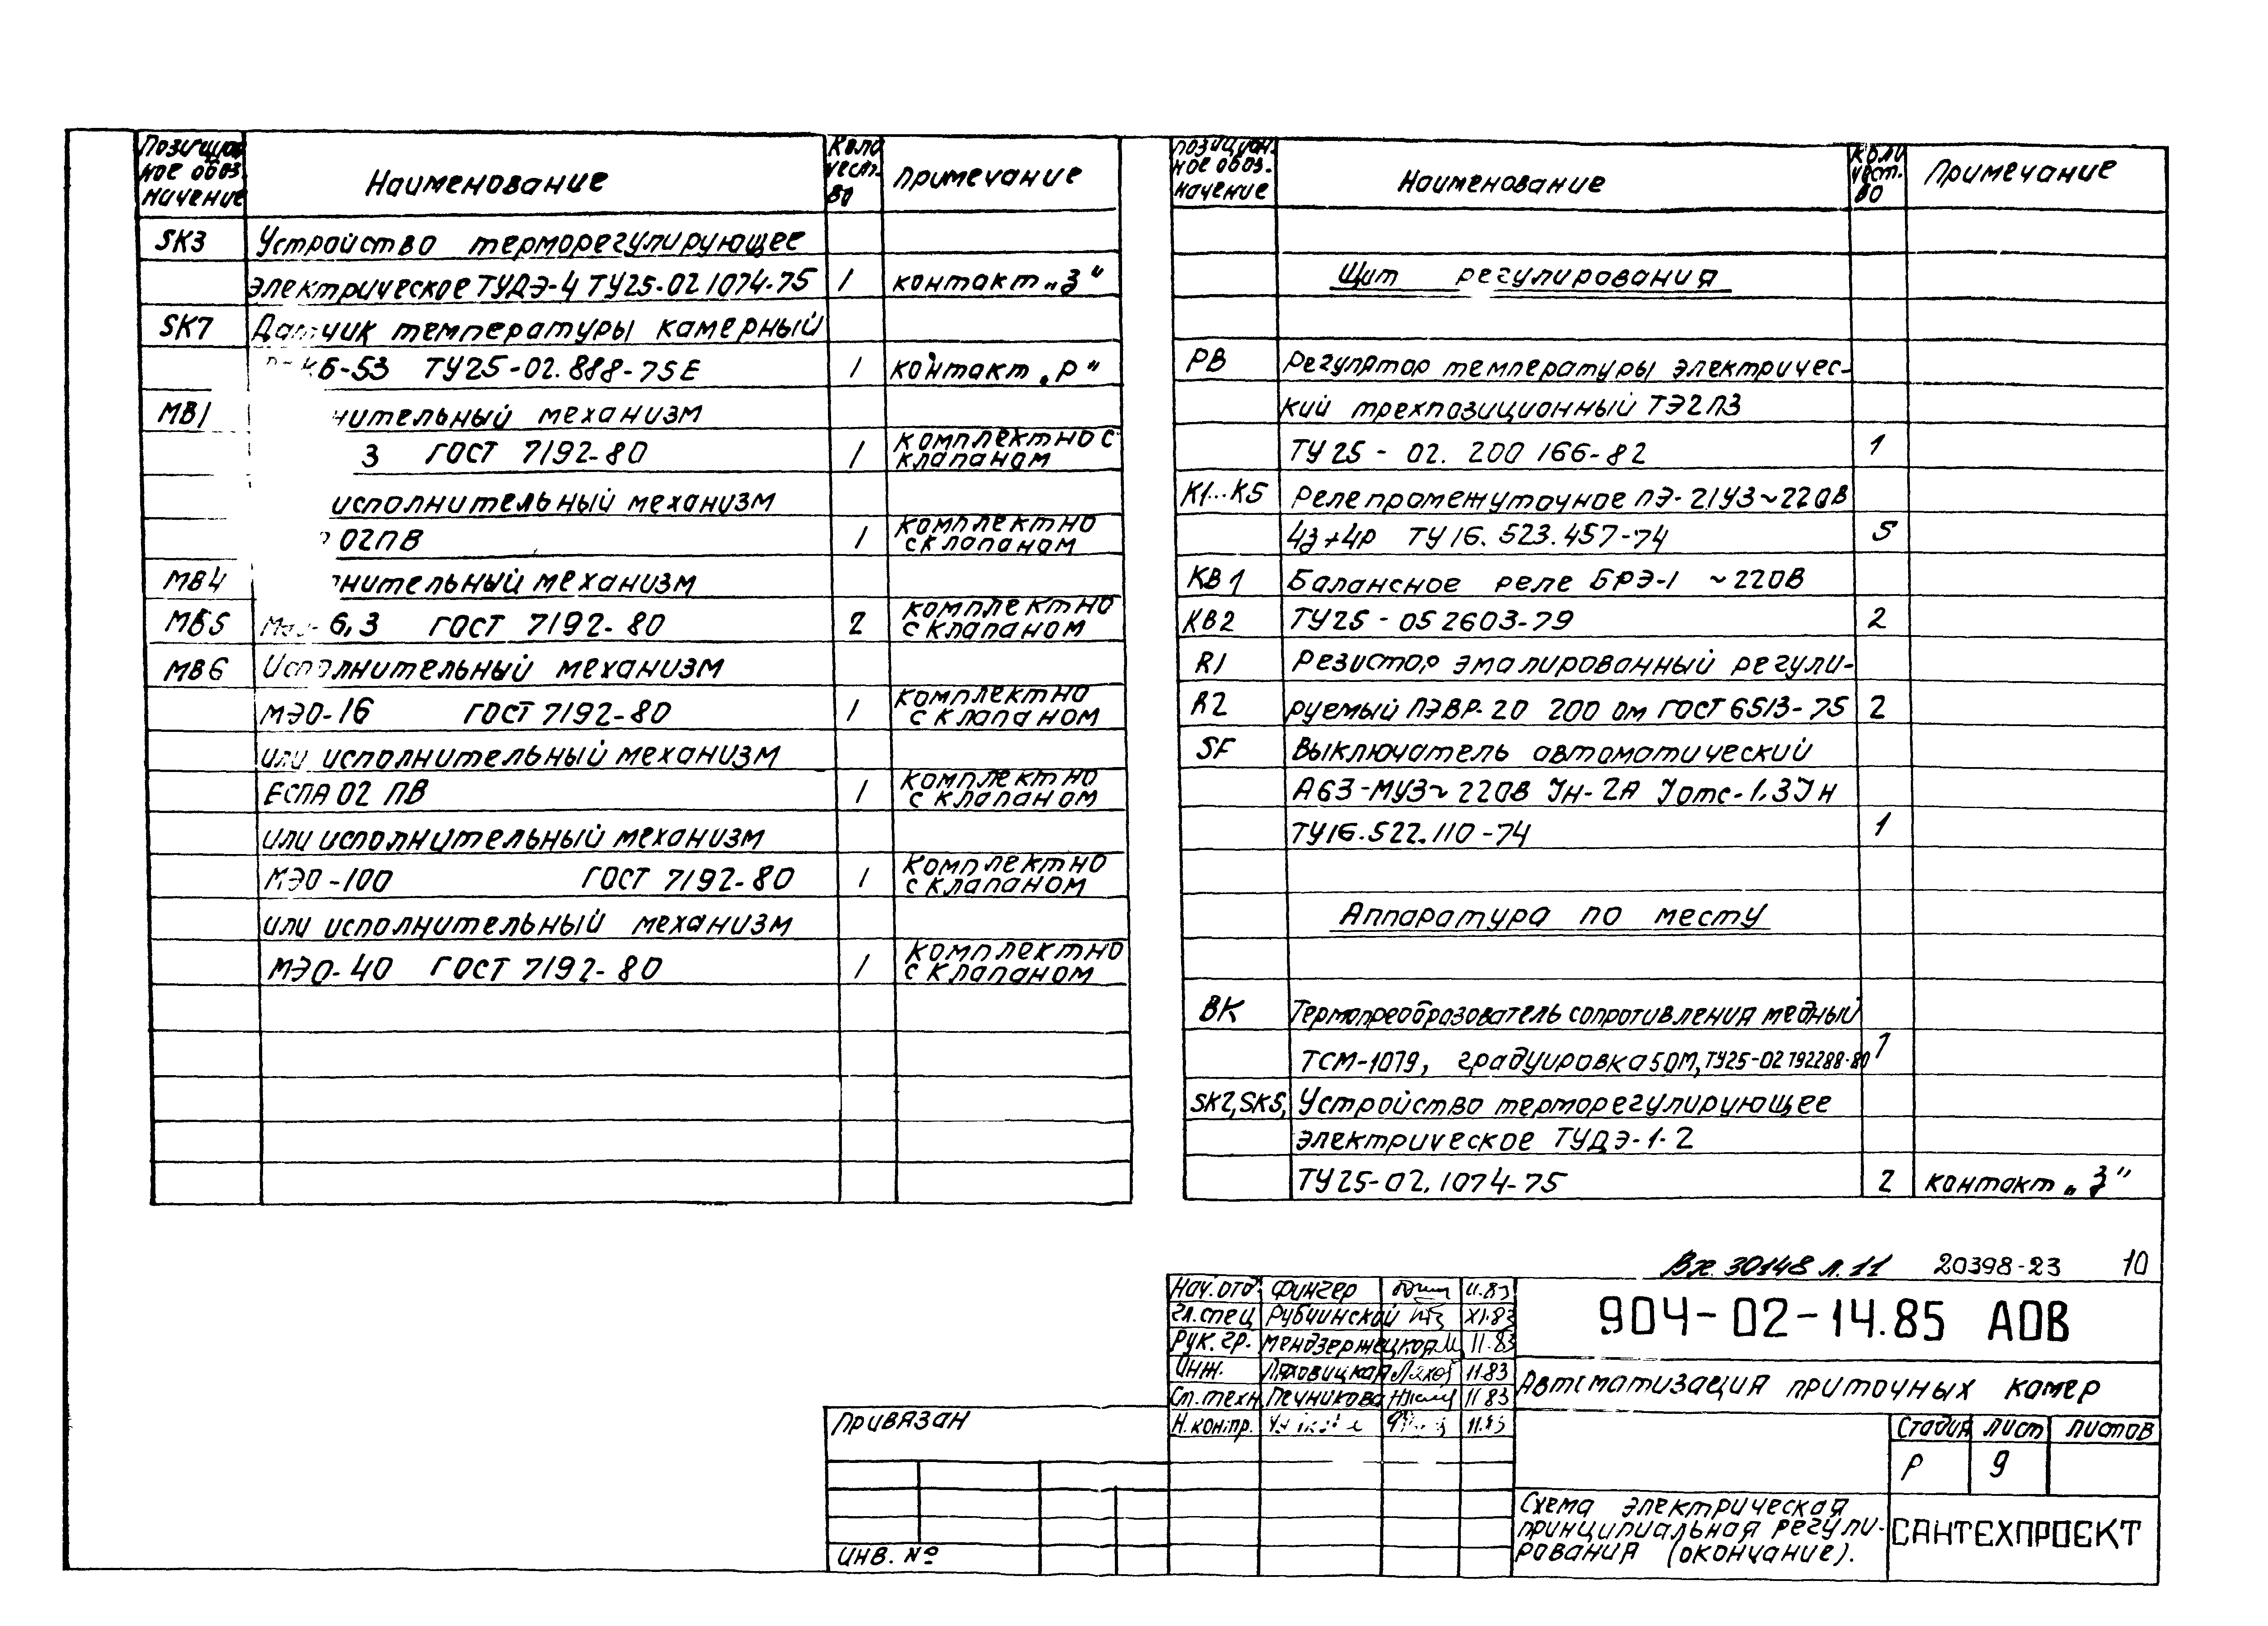 Позицион
ное обоз.
начение
Наименование
Коли
чест-
во
Примечание
SK3 Устройство терморегулирующее
электрическое ТУДЭ-4 ТУ25-02 1074-75 1 контакт „З"
SK7 Датчик температуры камерный
КБ-53 ТУ25-02.888-75Е 1 контакт „Р"
МВ1 нительный механизм
3 ГОСТ 7192-80 1 комплектно с
клапаном
исполнительный механизм
02ПВ 1 комплектно
с клапаном
МВ4 нительный механизм
МВ5 6,3 ГОСТ 7192-80 2 комплектно
с клапаном
МВ6 Исполнительный механизм
МЭО-16 ГОСТ 7192-80 1 комплектно
с клапаном
или исполнительный механизм
ЕСПА 02 ПВ 1 комплектно
с клапаном
или исполнительный механизм
МЭО-100 ГОСТ 7192-80 1 комплектно
с клапаном
или исполнительный механизм
МЭО-40 ГОСТ 7192-80 1 комплектно
с клапаном
Позицион-
ное обоз.
начение
Наименование
Коли
чест.
во
Примечание
Щит регулирования
РВ Регулятор температуры электричес-
кий трехпозиционный ТЭ2П3
ТУ 25 - 02. 200 166-82 1
К1...К5 Реле промежуточное ПЭ-21У3 ~ 220В
4з+4р ТУ 16. 523. 457-74 5
КВ1 Балансное реле БРЭ-1 ~ 220В
КВ2 ТУ25 - 05 2603-79 2
R1 Резистор эмалированный регули-
R2 руемый ПЭВР-20 200 Ом ГОСТ 6513-75 2
SF Выключатель автоматический
А63-МУ3 ~ 220В Jн-2А Jотс-1,3Jн
ТУ16.522.110-74 1
Аппаратура по месту
ВК Термопреобразователь сопротивления медный
ТСМ-1079, градуировка 50М, ТУ25-02 792288-80 1
SK2, SK5, Устройство терморегулирующее
электрическое ТУДЭ-1-2
ТУ25-02.1074-75 2 контакт „З"
Вх. 30148 л. 11 20398-23 10
Нач. отд. Фингер 11.83
Гл. спец Рубчинский XI.83
Рук. гр. Мендзержецкая 11.83
Инж. Ляховицкая Ляхов 11.83
Ст. техн. Печникова 11 83
Н. контр. 11.83
904-02-14.85 АОВ
Автоматизация приточных камер
Стадия Лист Листов
Р 9
Схема электрическая
принципиальная регули-
рования (окончание).
САНТЕХПРОЕКТ
Привязан
Инв. №